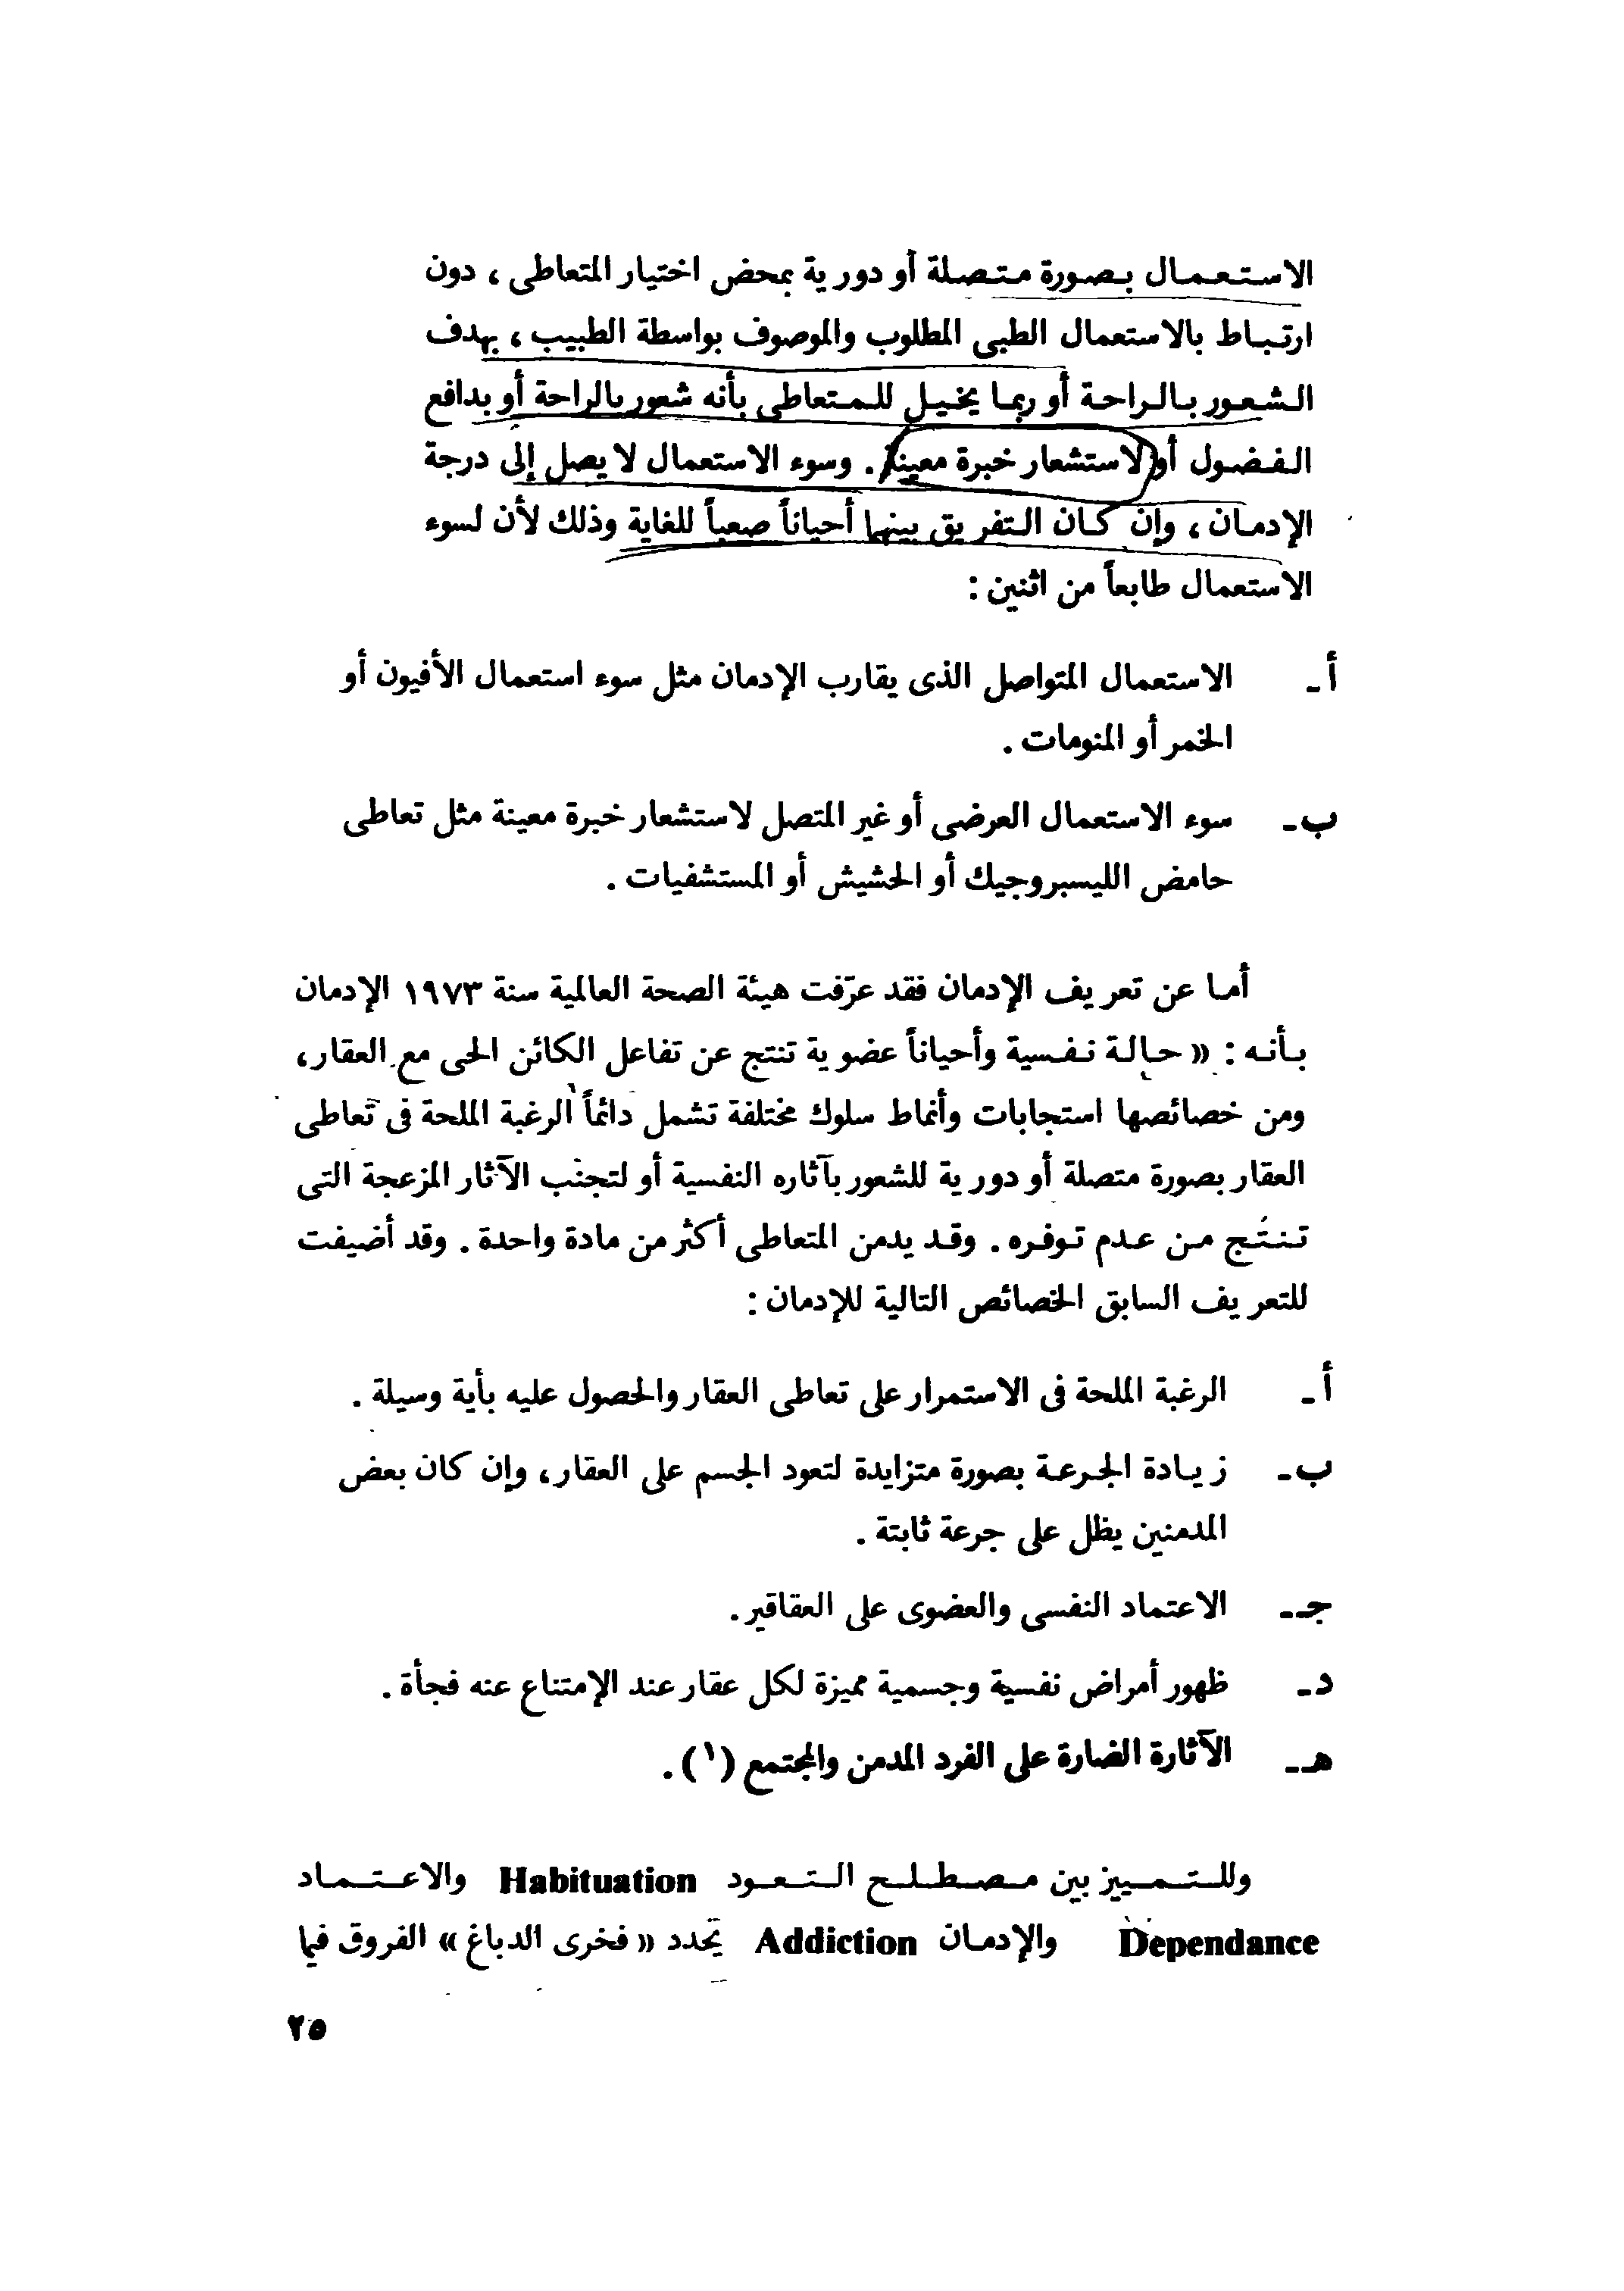 الاستعمال بصورة متصلة أو دورية بمحض اختيار المتعاطى ، دون
ارتباط بالاستعمال الطبى المطلوب والموصوف بواسطة الطبيب ، بهدف
الشعور بالراحة أو ربما يخيل للمتعاطى بأنه شعور بالراحة أو بدافع
الفضول أو لاستشعار خبرة معينة . وسوء الاستعمال لا يصل إلى درجة
الإدمان ، وإن كان التفريق بينهما أحياناً صعباً للغاية وذلك لأن لسوء
الاستعمال طابعاً من اثنين :
أ ـ الاستعمال المتواصل الذى يقارب الإدمان مثل سوء استعمال الأفيون أو
الخمر أو المنومات .
ب ـ سوء الاستعمال العرضى أو غير المتصل لاستشعار خبرة معينة مثل تعاطى
حامض الليسبروجيك أو الحشيش أو المستشفيات .
أما عن تعريف الإدمان فقد عرّفت هيئة الصحة العالمية سنة ١٩٧٣ الإدمان
بأنه : « حالة نفسية وأحياناً عضوية تنتج عن تفاعل الكائن الحى مع العقار ،
ومن خصائصها استجابات وأنماط سلوك مختلفة تشمل دائماً الرغبة الملحة فى تعاطى
العقار بصورة متصلة أو دورية للشعور بآثاره النفسية أو لتجنب الآثار المزعجة التى
تنتج من عدم توفره . وقد يدمن المتعاطى أكثر من مادة واحدة . وقد أضيفت
للتعريف السابق الخصائص التالية للإدمان :
أ ـ الرغبة الملحة فى الاستمرار على تعاطى العقار والحصول عليه بأية وسيلة .
ب ـ زيادة الجرعة بصورة متزايدة لتعود الجسم على العقار ، وإن كان بعض
المدمنين يظل على جرعة ثابتة .
جـ ـ الاعتماد النفسى والعضوى على العقاقير .
د ـ ظهور أمراض نفسية وجسمية مميزة لكل عقار عند الإمتناع عنه فجأة .
هـ ـ الآثارة الضارة على الفرد المدمن والمجتمع (١) .
وللتمييز بين مصطلح التعود Habituation والاعتماد
Dependance والإدمان Addiction يحدد « فخرى الدباغ » الفروق فيما
٢٥